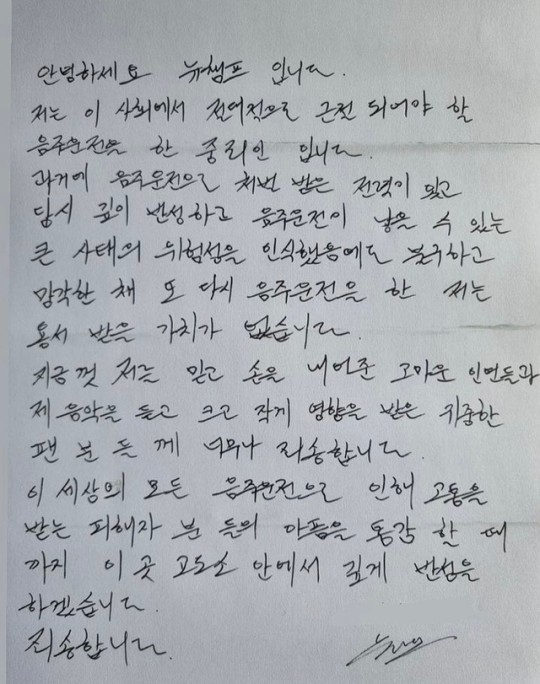 안녕하세요 뉴챔프 입니다.
저는 이 사회에서 전여적으로 근전 되어야 할
음주운전을 한 중죄인 입니다.
과거에 음주운전으로 처벌 받은 전력이 있고
당시 깊이 반성하고 음주운전이 낳을 수 있는
큰 사태의 위험성을 인식했음에도 불구하고
망각한 채 또 다시 음주운전을 한 저는
용서 받을 가치가 없습니다.
지금 껏 저를 믿고 손을 내어준 고마운 인연들과
제 음악을 듣고 크고 작게 영향을 받은 귀중한
팬 분 들 께 너무나 죄송합니다.
이 세상의 모든 음주운전으로 인해 고통을
받는 피해자 분 들의 아픔을 통감 할 때
까지 이 곳 교도소 안에서 깊게 반성을
하겠습니다.
죄송합니다.